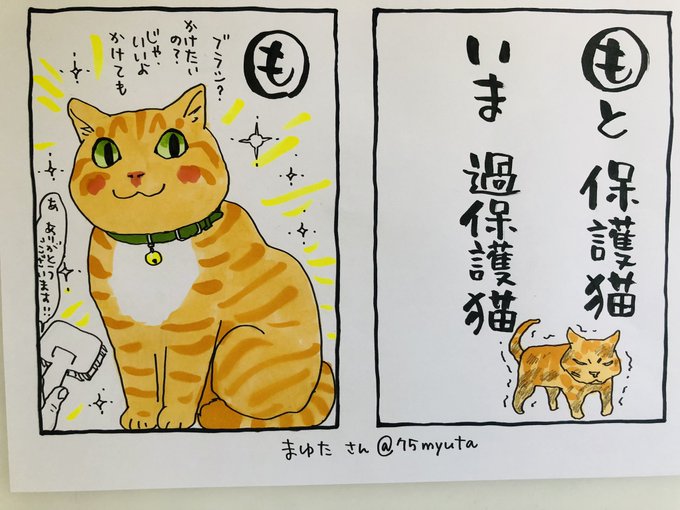 も
ブラシ?
かけたい
の?
じゃ
いいよ
かけても
あ ありがとう
ございます!!
もと 保護猫
いま 過保護猫
まゆた さん @75myuta